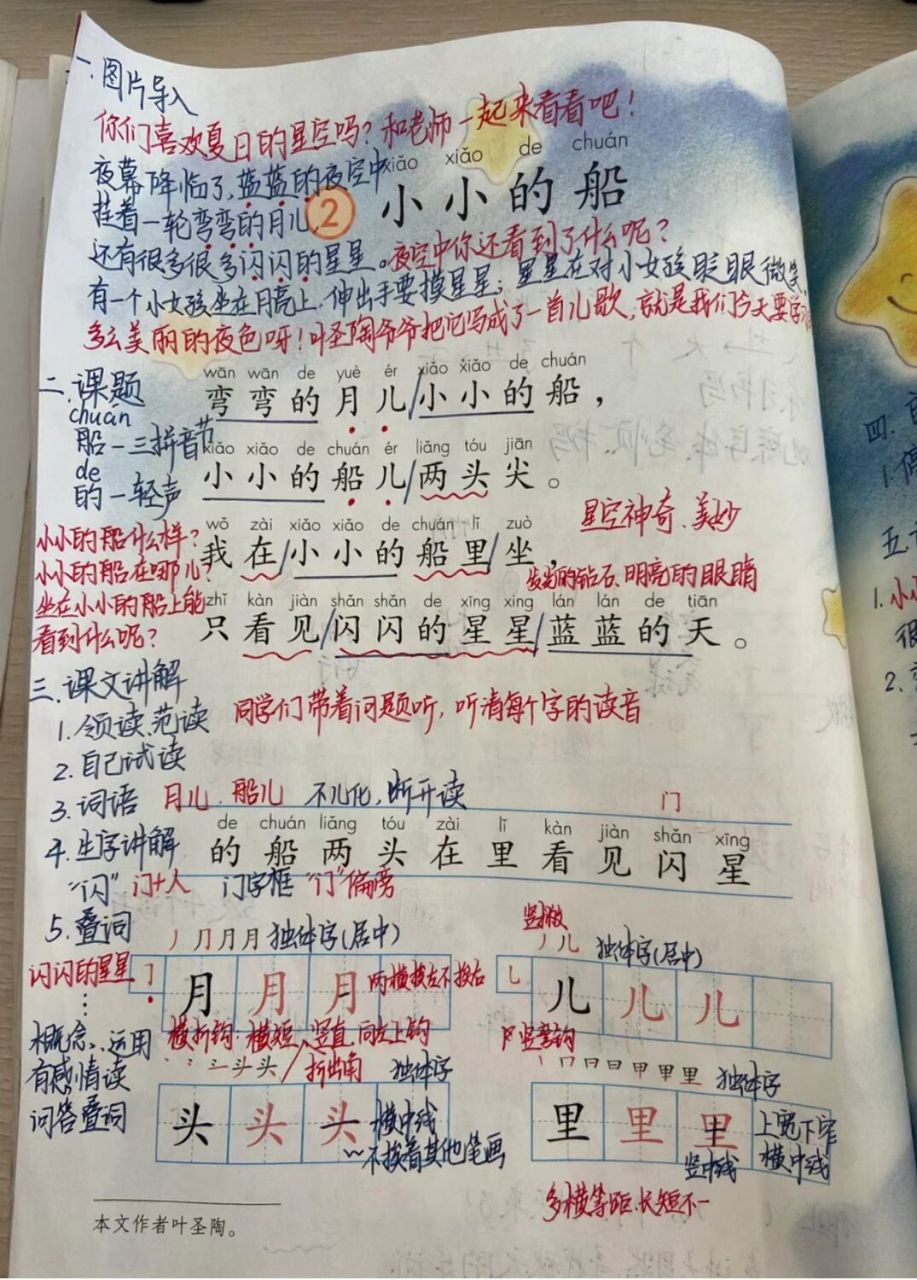 一.图片导入
你们喜欢夏日的星空吗？和老师一起来看看吧！
夜幕降临了，蓝蓝的夜空中
挂着一轮弯弯的月儿，
xiǎo xiǎo de chuán
2 小小的船
还有很多很多闪闪的星星。夜空中你还看到了什么呢？
有一个小女孩坐在月亮上，伸出手要摸星星；星星在对小女孩眨眼微笑，
多么美丽的夜色呀！叶圣陶爷爷把它写成了一首儿歌，就是我们今天要学习
二.课题
chuán
船－三拼音节
de
的－轻声
wān wān de yuè ér xiǎo xiǎo de chuán
弯弯的月儿/小小的船，
xiǎo xiǎo de chuán ér liǎng tóu jiān
小小的船儿/两头尖。
星空神奇、美妙
小小的船什么样？
小小的船在哪儿？
坐在小小的船上能
看到什么呢？
wǒ zài xiǎo xiǎo de chuán lǐ zuò
我在/小小的船里/坐，
发光的钻石、明亮的眼睛
zhǐ kàn jiàn shǎn shǎn de xīng xing lán lán de tiān
只看见/闪闪的星星/蓝蓝的天。
三.课文讲解
1.领读、范读 同学们带着问题听，听清每个字的读音
2.自己试读
3.词语 月儿、船儿 不儿化，断开读
门
4.生字讲解
de chuán liǎng tóu zài lǐ kàn jiàn shǎn xīng
的船两头在里看见闪星
“闪”门+人 门字框 “门”偏旁
5.叠词
闪闪的星星
⋮
概念、运用
有感情读
问答叠词
丿 ⺆ 月 月 独体字(居中)
月 月 月 两横挨左不挨右
横折钩：横短、竖直、向左上钩
折出角
竖撇
丿 儿 独体字(居中)
乚 儿 儿 儿
竖弯钩
头 头 独体字
头 头 头 横中线
不挨着其他笔画
丨 冂 日 日 甲 甲 里 独体字
里 里 里 上宽下窄
竖中线 横中线
多横等距、长短不一
本文作者叶圣陶。
四.
1.
五.
1.小
2.